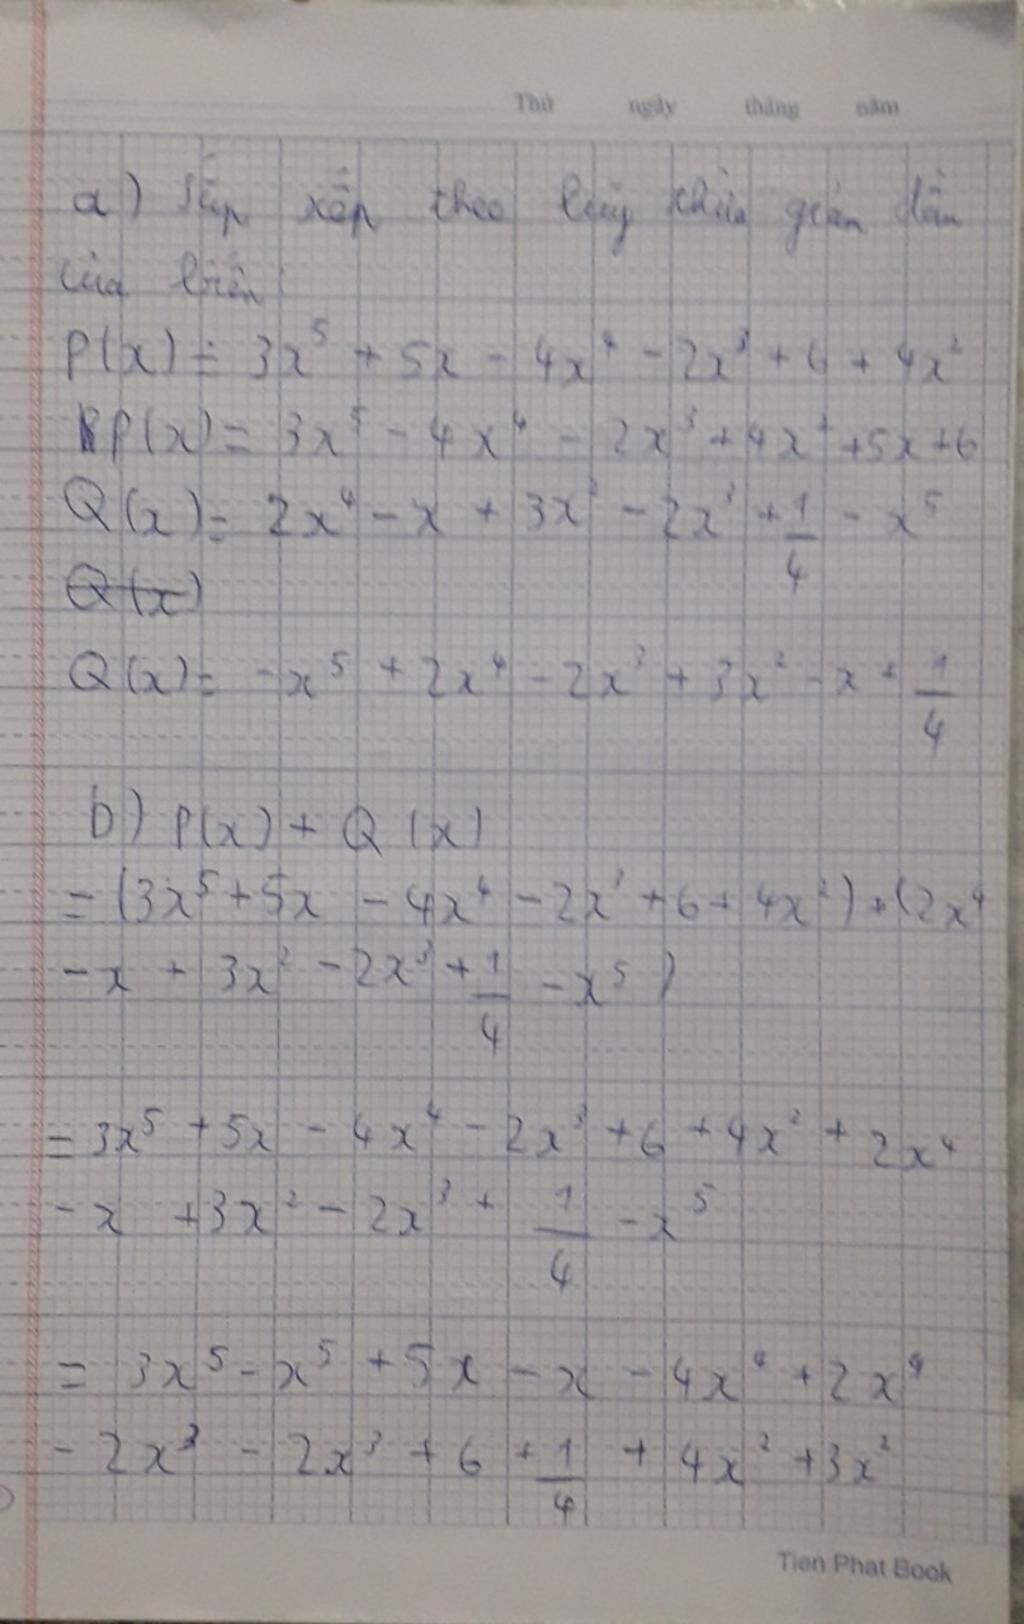 Thứ ngày tháng năm
a) Sắp xếp theo lũy thừa giảm dần
của biến
P(x) = 3x⁵ + 5x - 4x⁴ - 2x³ + 6 + 4x²
P(x) = 3x⁵ - 4x⁴ - 2x³ + 4x² + 5x + 6
Q(x) = 2x⁴ - x + 3x² - 2x³ + 1/4 - x⁵
Q(x)
Q(x) = -x⁵ + 2x⁴ - 2x³ + 3x² - x + 1/4
b) P(x) + Q(x)
= (3x⁵ + 5x - 4x⁴ - 2x³ + 6 + 4x²) + (2x⁴
- x + 3x² - 2x³ + 1/4 - x⁵)
= 3x⁵ + 5x - 4x⁴ - 2x³ + 6 + 4x² + 2x⁴
- x + 3x² - 2x³ + 1/4 - x⁵
= 3x⁵ - x⁵ + 5x - x - 4x⁴ + 2x⁴
- 2x³ - 2x³ + 6 + 1/4 + 4x² + 3x²
Tien Phat Book